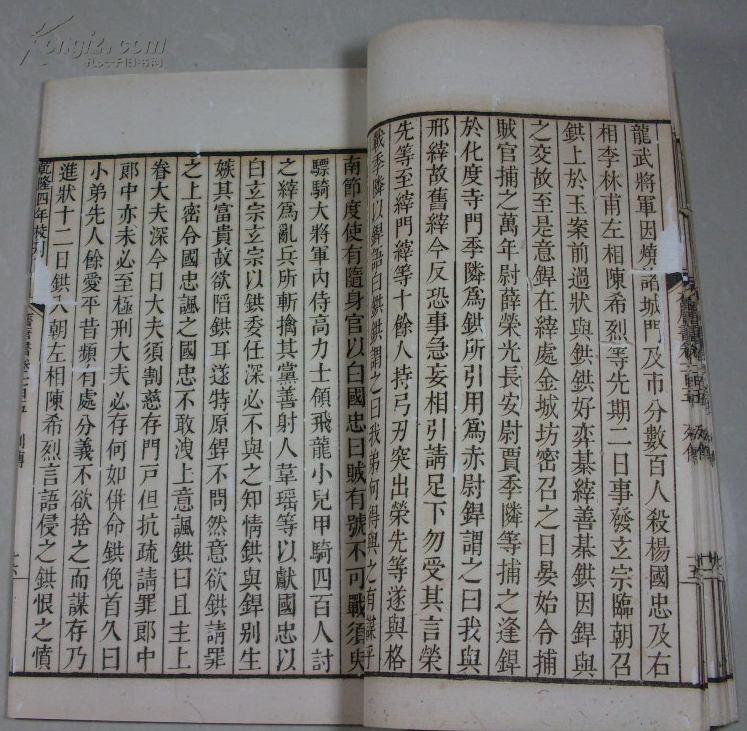 龍武將軍因燒諸城門及市分數百人殺楊國忠及右
相李林甫左相陳希烈等先期二日事發玄宗臨朝召
鉷上於玉案前過狀與鉷鉷好弈棊縡善棊鉷因銲與
之交故至是意銲在縡處金城坊密召之日晏始令捕
賊官捕之萬年尉薛榮光長安尉賈季隣等捕之逢銲
於化度寺門季隣為鉷所引用為赤尉銲謂之曰我與
邢縡故舊縡今反恐事急妄相引請足下勿受其言榮
先等至縡門縡等十餘人持弓刃突出榮先等遂與格
戰季隣以銲語白鉷鉷謂之曰我弟何得與之有謀乎
南節度使有隨身官以白國忠曰賊有號不可戰須臾
驃騎大將軍內侍高力士領飛龍小兒甲騎四百人討
之縡為亂兵所斬擒其黨善射人韋瑶等以獻國忠以
白玄宗玄宗以鉷委任深必不與之知情鉷與銲别生
嫉其富貴故欲陷鉷耳遂特原銲不問然意欲鉷請罪
之上密令國忠諷之國忠不敢洩上意諷鉷曰且主上
眷大夫深今日大夫須割慈存門戶但抗疏請罪郎中
郎中亦未必至極刑大夫必存何如併命鉷俛首久曰
小弟先人餘愛平昔頻有處分義不欲捨之而謀存乃
進狀十二日鉷入朝左相陳希烈言語侵之鉷恨之憤
乾隆四年校刊
孔夫子旧书网